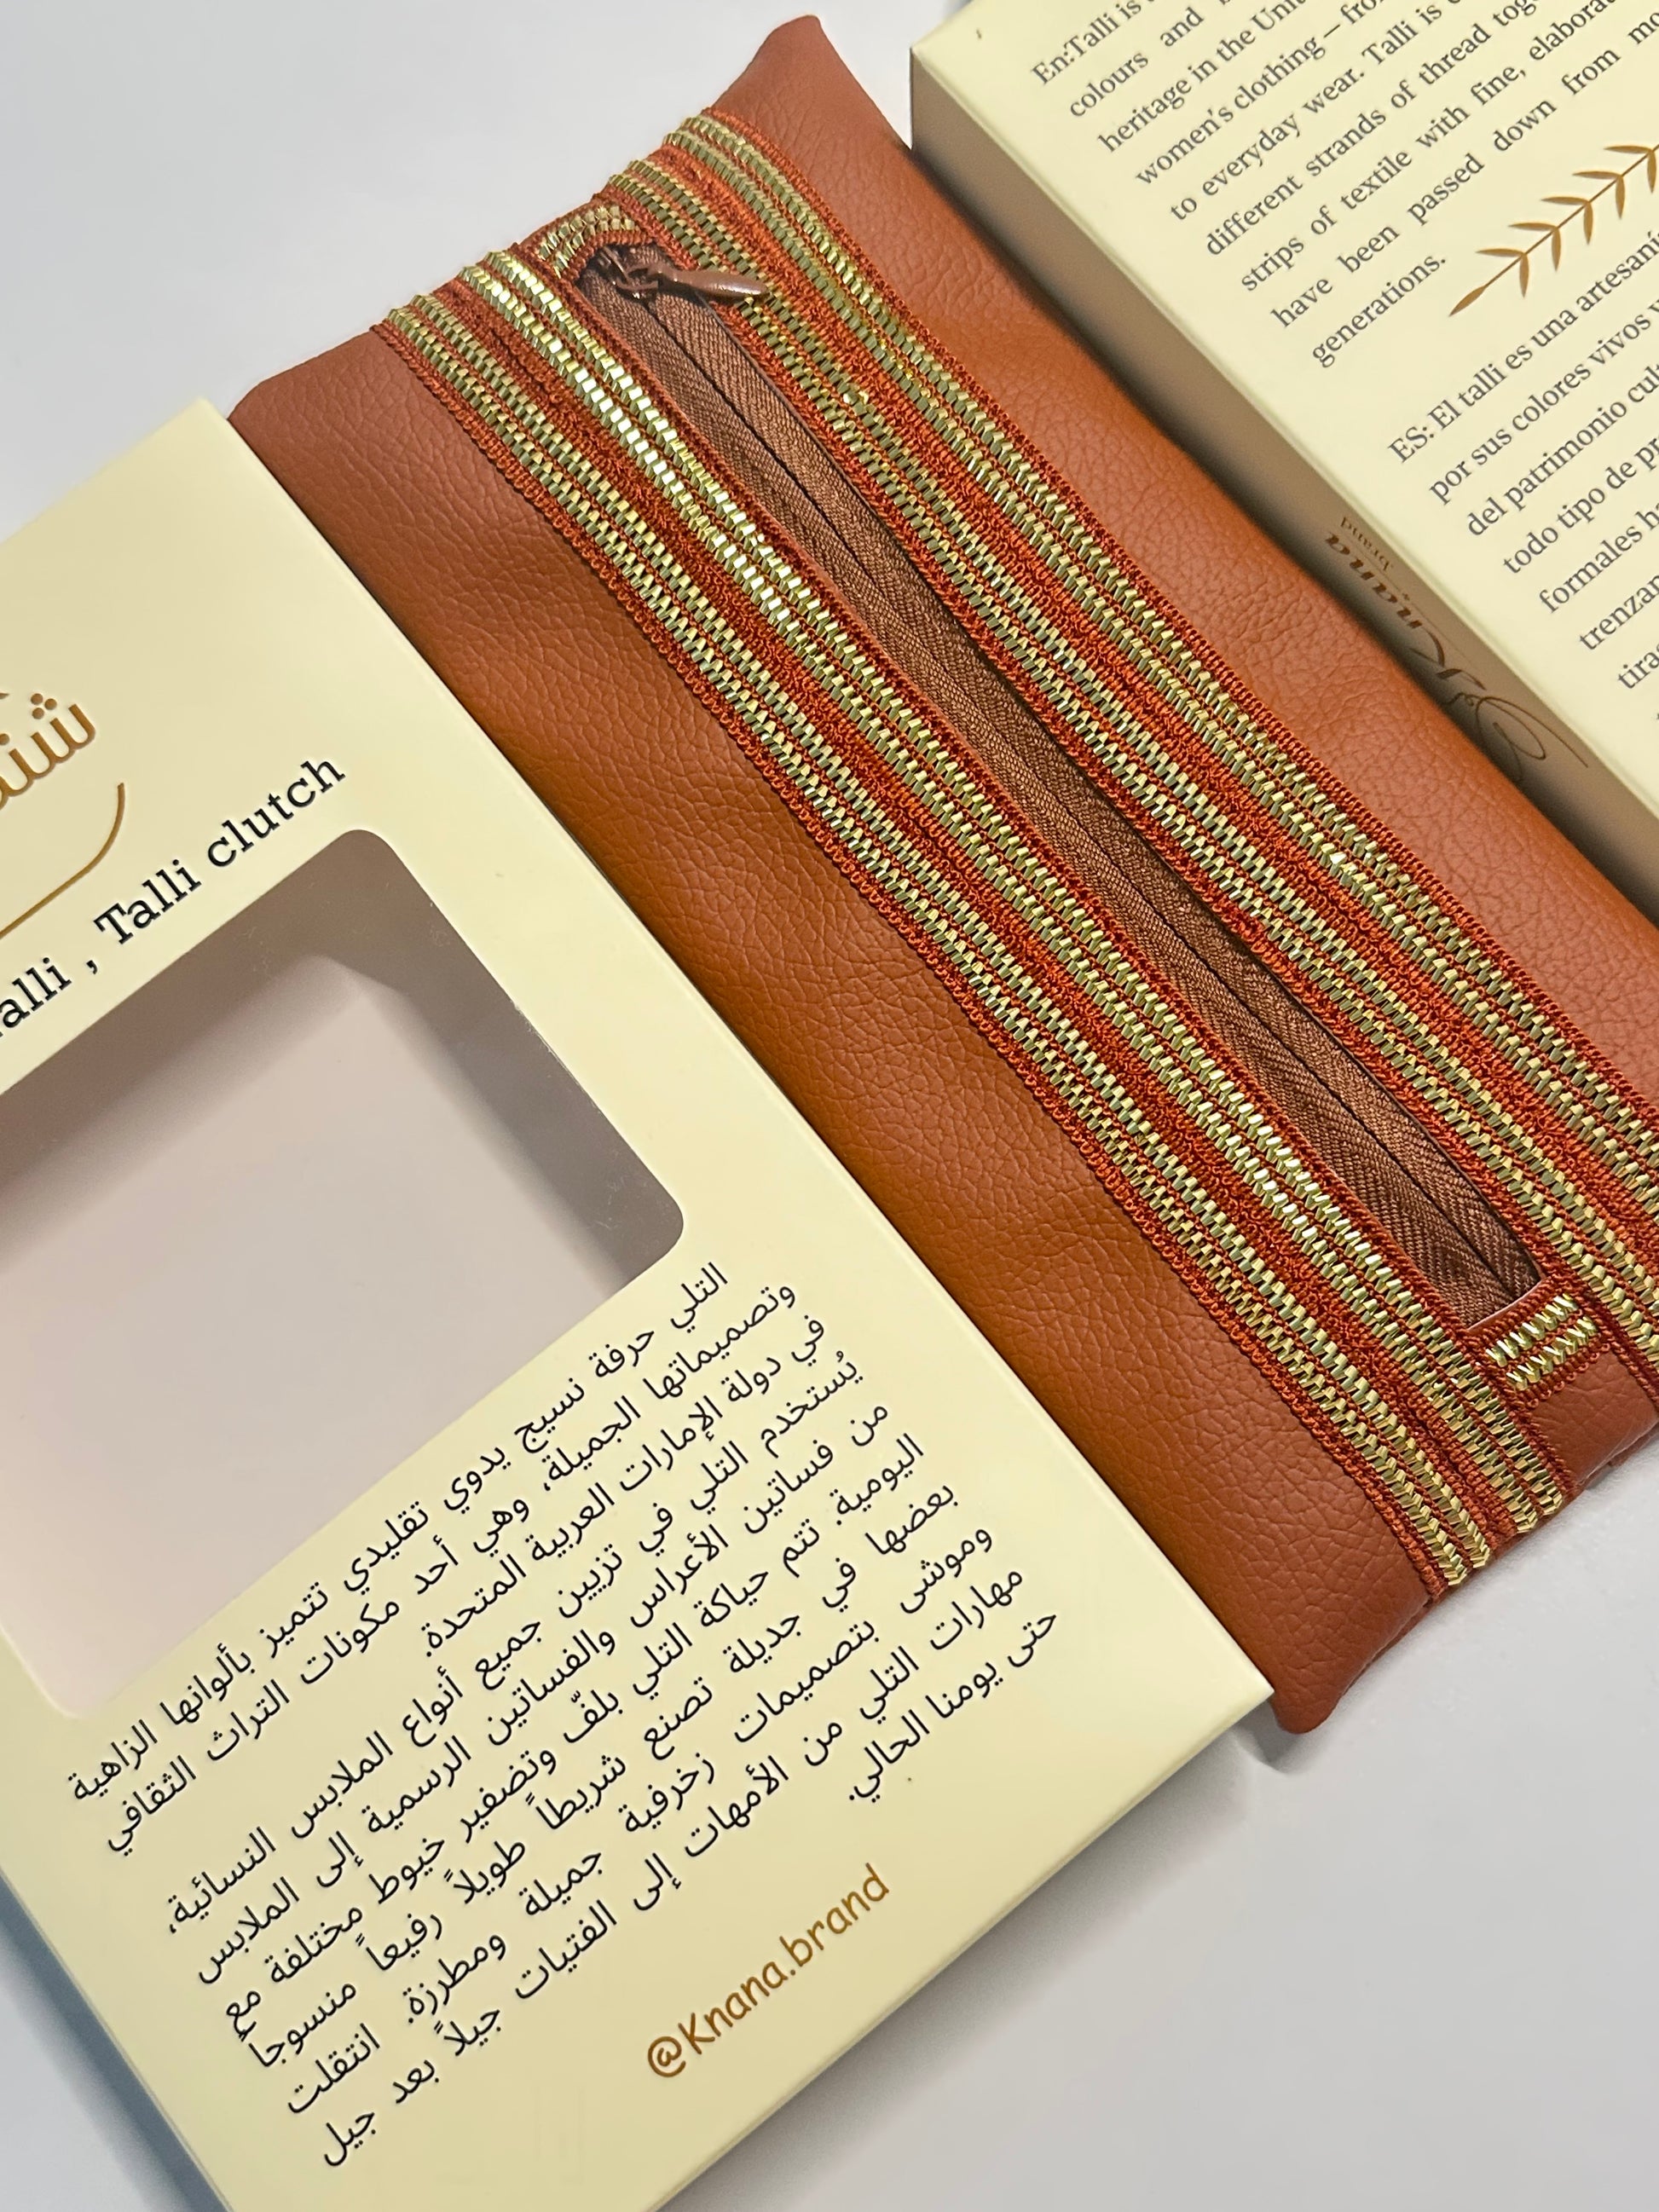 Talli clutch
التلي حرفة نسيج يدوي تقليدي تتميز بألوانها الزاهية
وتصميماتها الجميلة، وهي أحد مكونات التراث الثقافي
في دولة الإمارات العربية المتحدة.
يُستخدم التلي في تزيين جميع أنواع الملابس النسائية،
من فساتين الأعراس والفساتين الرسمية إلى الملابس
اليومية. تتم حياكة التلي بلفّ وتضفير خيوط مختلفة مع
بعضها في جديلة تصنع شريطاً طويلاً رفيعاً منسوجاً
وموشى بتصميمات زخرفية جميلة ومطرزة. انتقلت
مهارات التلي من الأمهات إلى الفتيات جيلاً بعد جيل
حتى يومنا الحالي.
@Knana.brand
En:Talli is
colours and
heritage in the
women's clothing –
to everyday wear. Talli is
different strands of thread
strips of textile with fine,
have been passed down from
generations.
ES: El talli es una
por sus colores vivos
del patrimonio
todo tipo de
formales
Knana
brand